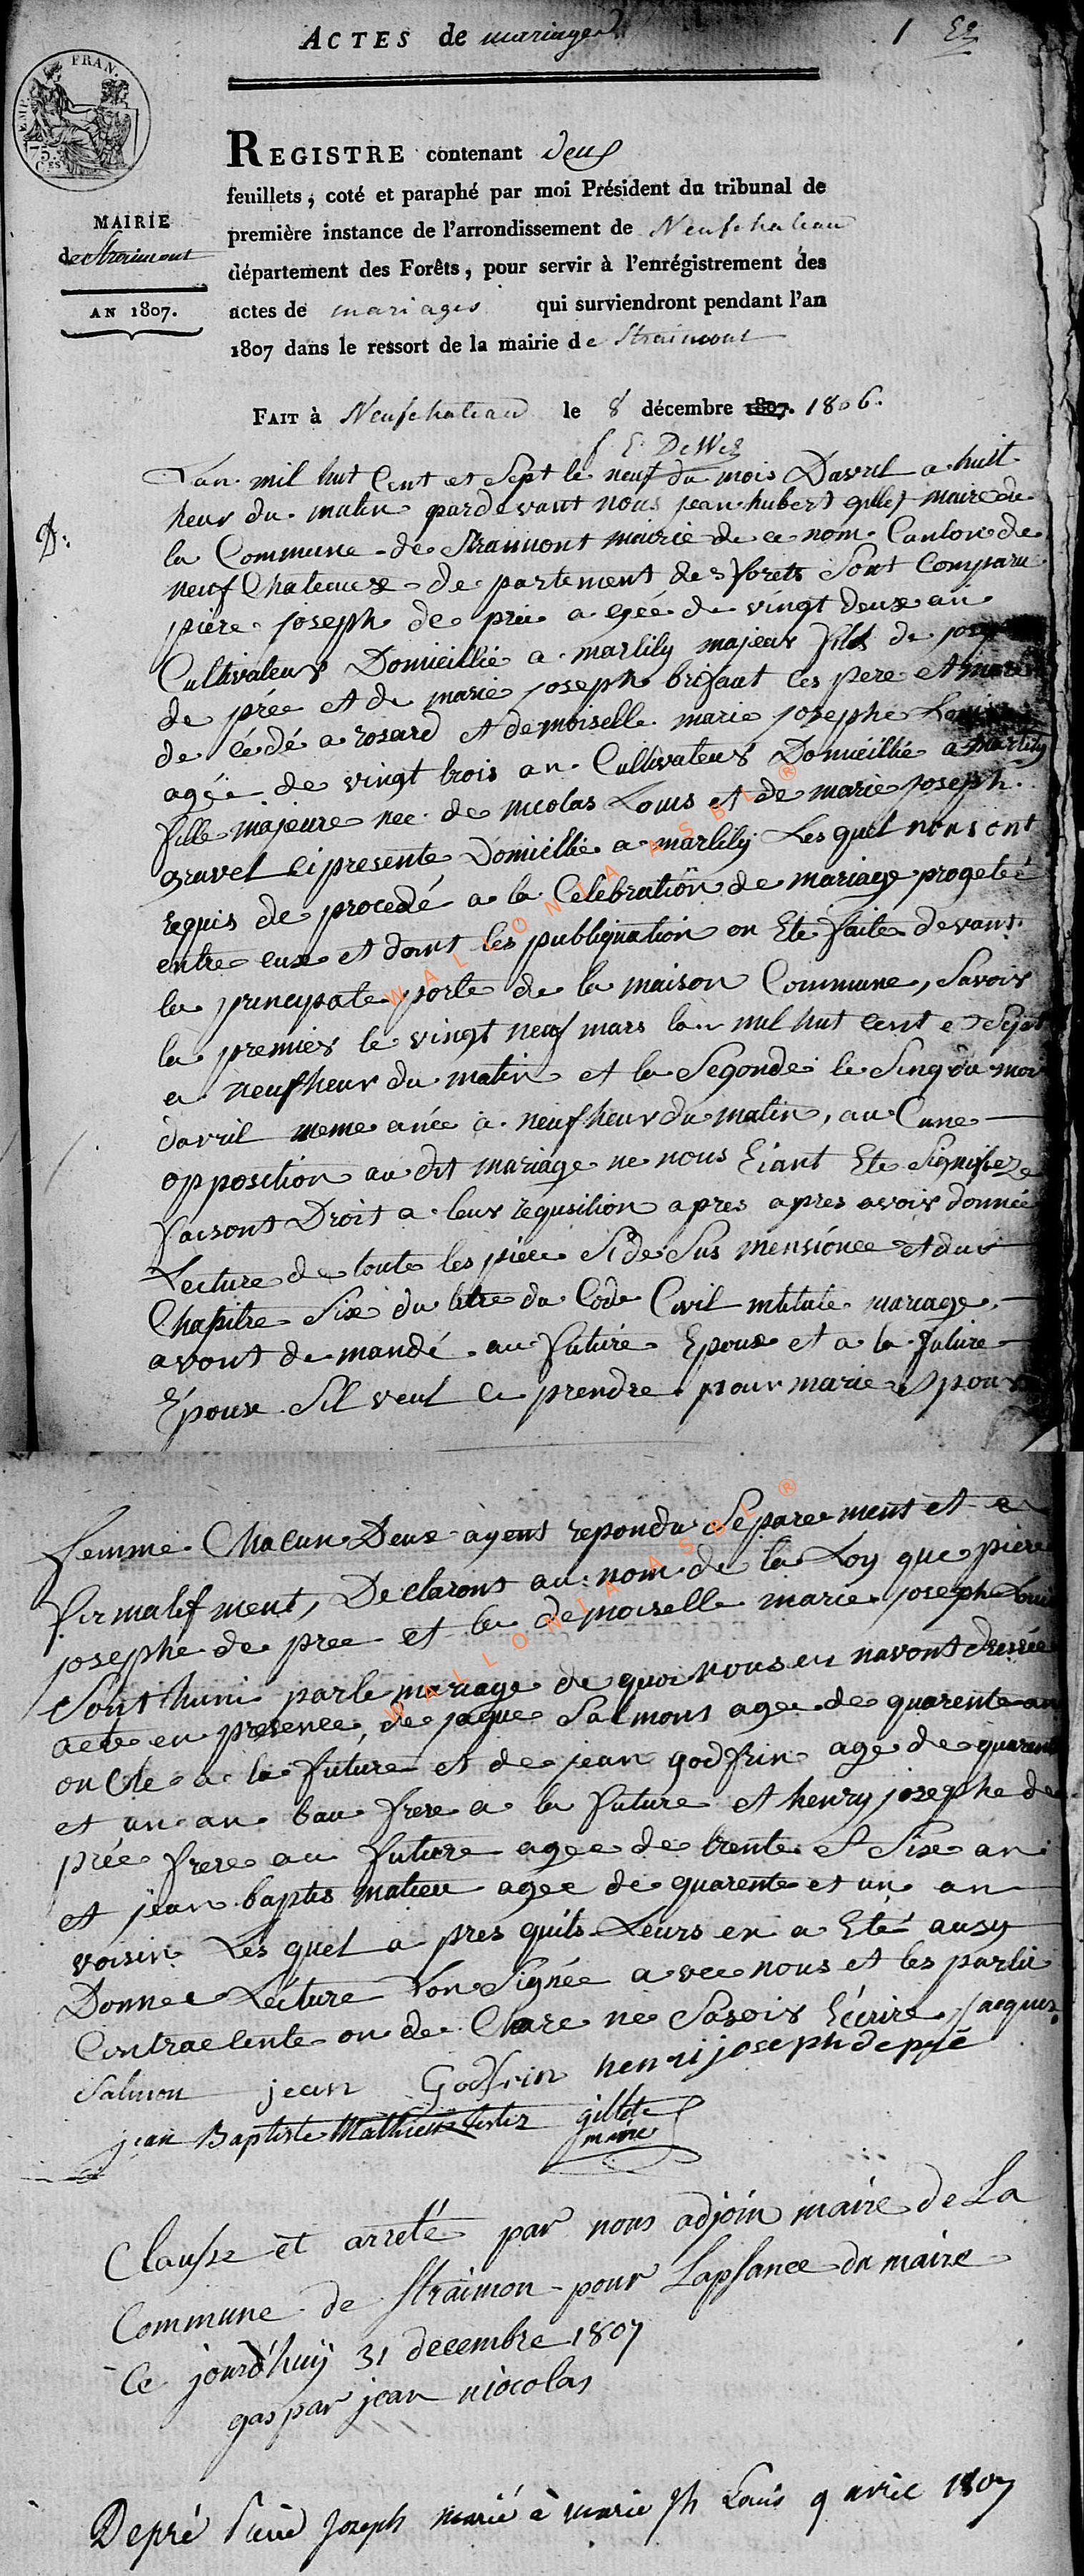 ACTES de mariages
1 Er
TIMP. FRAN.
75 C.es
MAIRIE
de Straimont
AN 1807.
REGISTRE contenant deux
feuillets, coté et paraphé par moi Président du tribunal de
première instance de l'arrondissement de Neufchateau
département des Forêts, pour servir à l'enrégistrement des
actes de mariages qui surviendront pendant l'an
1807 dans le ressort de la mairie de Straimont
FAIT à Neufchateau le 8 décembre 1807. 1806.
f E. DeWez
D:
Lan mil hut Cent et Sept le neuf du mois Davril a huit
heur du matin pardevant nous jean hubert gillet maire de
la Commune de Straimont mairie de ce nom Canton de
neuf Chateaux de partement des forets Sont Comparu
piere joseph de prée a gée de vingt deux an
Cultivateur Domieillié a martily majeur fils de
de prée et de marie joseph brifaut ces pere et mere
de cédé a rosard et demoiselle marie josephe
agée de vingt trois an Cultivateur Domieillié a martily
fille majeure nee de nicolas Louis et de marie joseph
gravet ci presente Domicillie a martily Les quel nous ont
requis de procedé a la Celebration de mariage progeteé
entre eux et dont les publiquation on Ete faite devant
la principate porte de la maison Commune, Savoir
la premier le vingt neuf mars lan mil hut cent et Sept
a neuf heur du matin et la Segonde le Sinq du moi
davril meme anée a neuf heur du matin, au Cune
opposition au dit mariage ne nous Eiant Ete Signifiez
faisont Droit a leur requsition apres apres avoir donnée
Lecture de toute les piece Si de Sus mensionée et du
Chapitre Six du litre du Code Civil intitule mariage
avont de mandé au futiré Epoux et a la future
Epoux Sil veul Ce prendre pour marie et pour
femme Chacun Deux ayent repondu Separement et a
firmatif ment, Declarons au nom de la Loy que piere
josephe de pree et la demoiselle marie joseph Louis
Sont huni par le mariage de quoi nous en navont dressée
acte en presence, de jaque Salmons agee de quarente an
oncle a la future et de jean godfrin age de quarent
et un an bau frere a la future et henry josephe de
prée frere au future agee de trente et Six an
et jean baptis matieu agee de quarente et un an
voisin Les quel a pres quils Leurs en a Eté ausy
Donnee Lecture lon Signée a vec nous et les partie
Contractente on de Clare ne Savoir Eécrire jacques
Salmon jean Godfrin henri joseph depré
jean Baptiste Mathieux gillet
maire
Clausse et arreté par nous adjoin maire de La
Commune de Straimon pour Lapsance du maire
Ce jourd'huij 31 decembre 1807
gaspar jean niocolas
Depré Pierre Joseph marié à marie Jh Louis 9 avril 1807
WALLONIA ASBL ®
WALLONIA ASBL ®